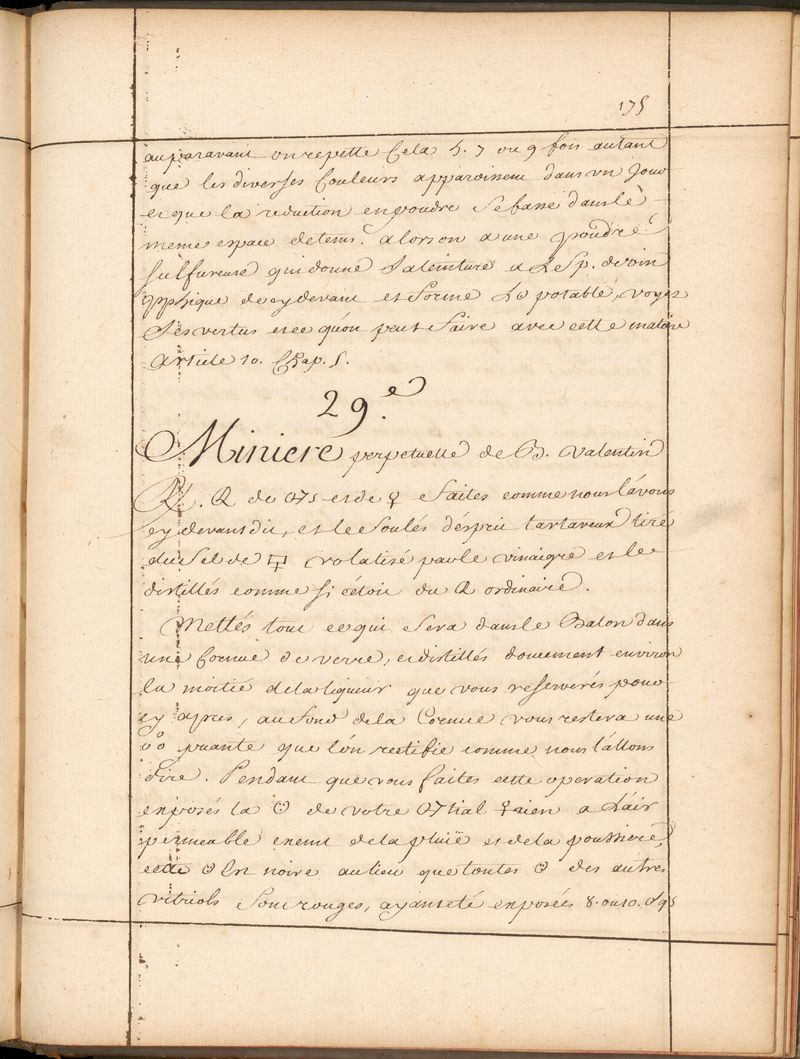 175
auparavant on repette Cela 5. 7 ou 9 fois autant
que les diverses Couleurs apparoissent dans un Jour
et que la reduction en poudre se fasse dans le
meme espace detems. alors on a une poudre
sulfureuse qui donne sa teinture a L'esp. de vin
ϕphique de cy devant et forme L'☉ potable, voyez
ses vertus et ce qu'on peut faire avec cette matiere
Article 10. Chap. 5.
29.e
Miniere perpetuelle de B. Valentin
de et de ♀ faites comme nous l'avons
cy devant dit, et le soulés d'esprit tartareux tiré
du Sel de volatisé par le vinaigre et le
distillés comme si c'étoit du ordinaire.
Mettés tout ce qui sera dans le Balon dans
une Cornue de verre, et distillés doucement environ
la moitié de la liqueur que vous reserverés pour
cy apres, au fond de la Cornue vous restera une
puante que l'on rectifie comme nous l'allons
dire. Pendant que vous faites cette operation
exposés la de votre ♀ a L'air
permeable exemt de la pluïe et de la poussiere,
cette Est noire au lieu que toutes des autres
vitriols sont rouges, ayant eté exposées 8. ou 10.